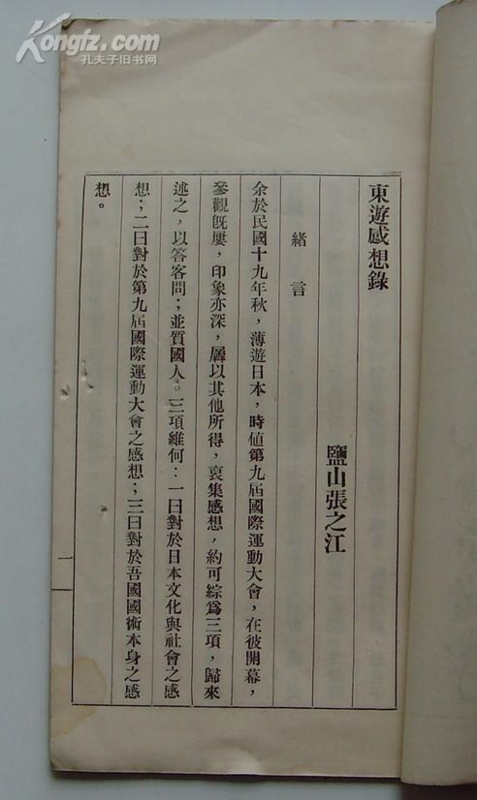 Kongfz.com
孔夫子旧书网
東遊感想錄
鹽山張之江
緒言
余於民國十九年秋，薄遊日本，時值第九屆國際運動大會，在彼開幕，
參觀既屢，印象亦深，屬以其他所得，裒集感想，約可綜爲三項，歸來
述之，以答客問；並質國人。三項維何：一曰對於日本文化與社會之感
想；二曰對於第九屆國際運動大會之感想；三曰對於吾國國術本身之感
想。
一